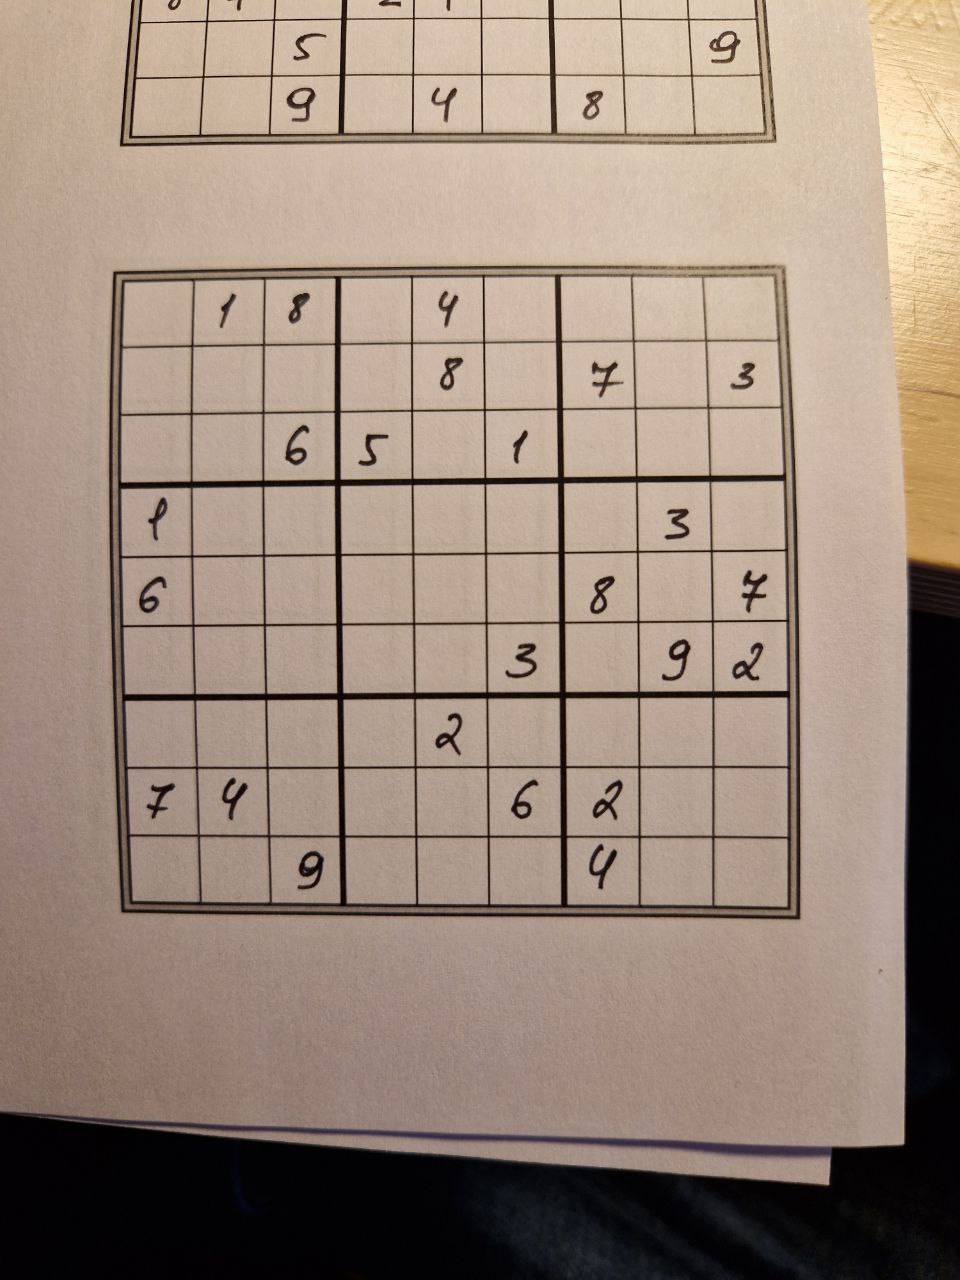 5 9
9 4 8
1 8 4
8 7 3
6 5 1
1 3
6 8 7
3 9 2
2
7 4 6 2
9 4